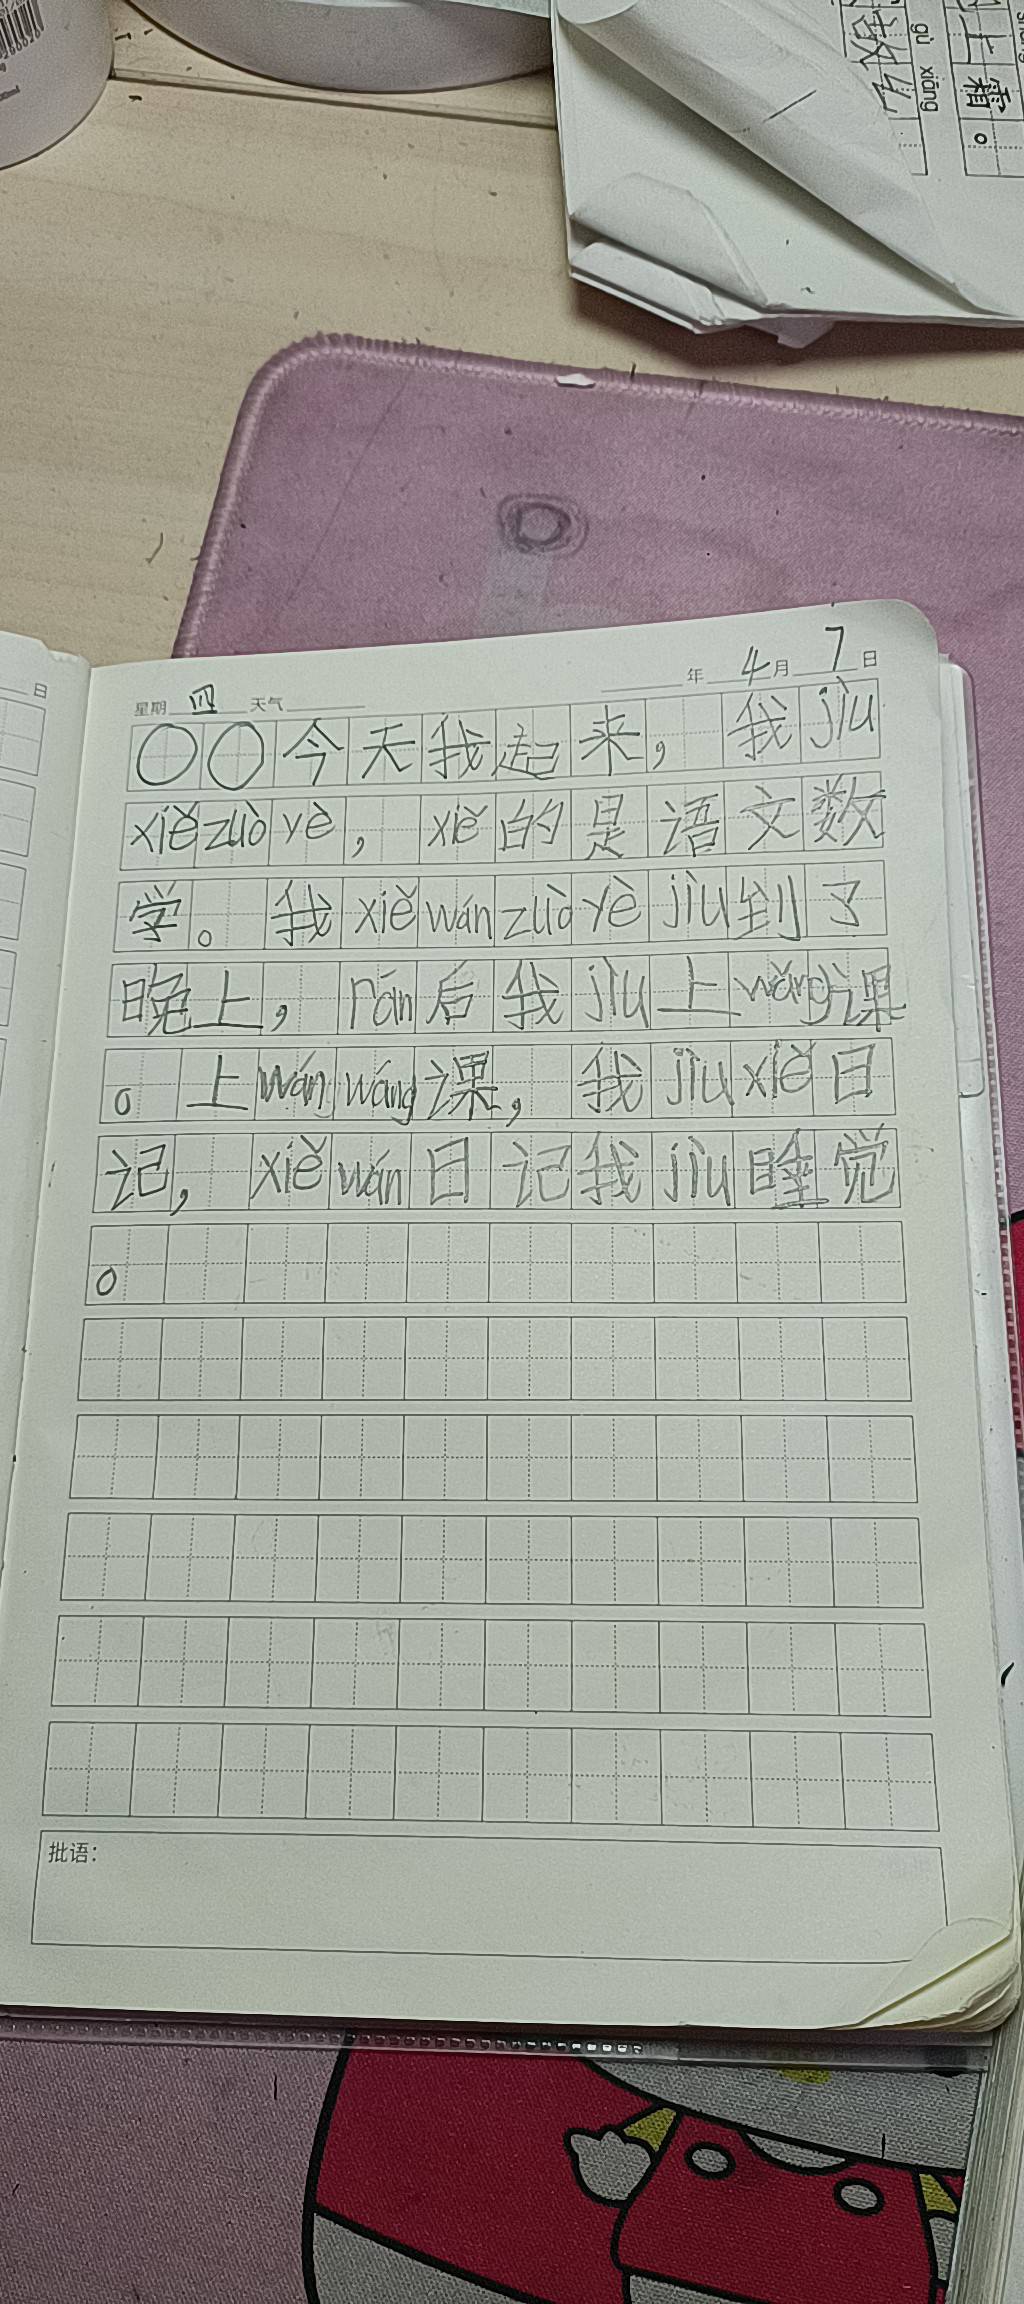 gù xiāng
上霜。
日
年 4月 7日
星期 四 天气
〇〇今天我起来，我jiù
xiězuòyè，xiě的是语文数
学。我xiěwánzuòyèjiù到了
晚上，rán后我jìu上wǎng课
。上wánwǎng课，我jìuxiě日
记，xiěwán日记我jìu睡觉
。
批语：